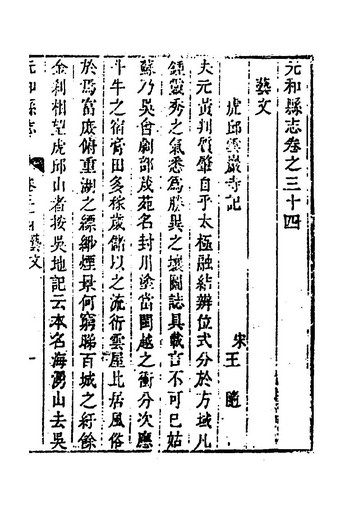 元和縣志卷之三十四
藝文
虎邱雲巖寺記
宋王隨
夫元黃判質肇自乎太極融結辨位式分於方域凡
鍾靈秀之氣悉爲勝異之壤圖誌具載言不可巳姑
蘇乃吳會劇部茂苑名封川塗當閩越之衝分次應
斗牛之宿膏田多稼歲儲以之流衍雲屋比居風俗
於焉富庶俯重湖之縹緲煙景何窮聯百城之紆餘
金刹相望虎邱山者按吳地記云本名海湧山去吳
元和縣志
卷三十四藝文
一